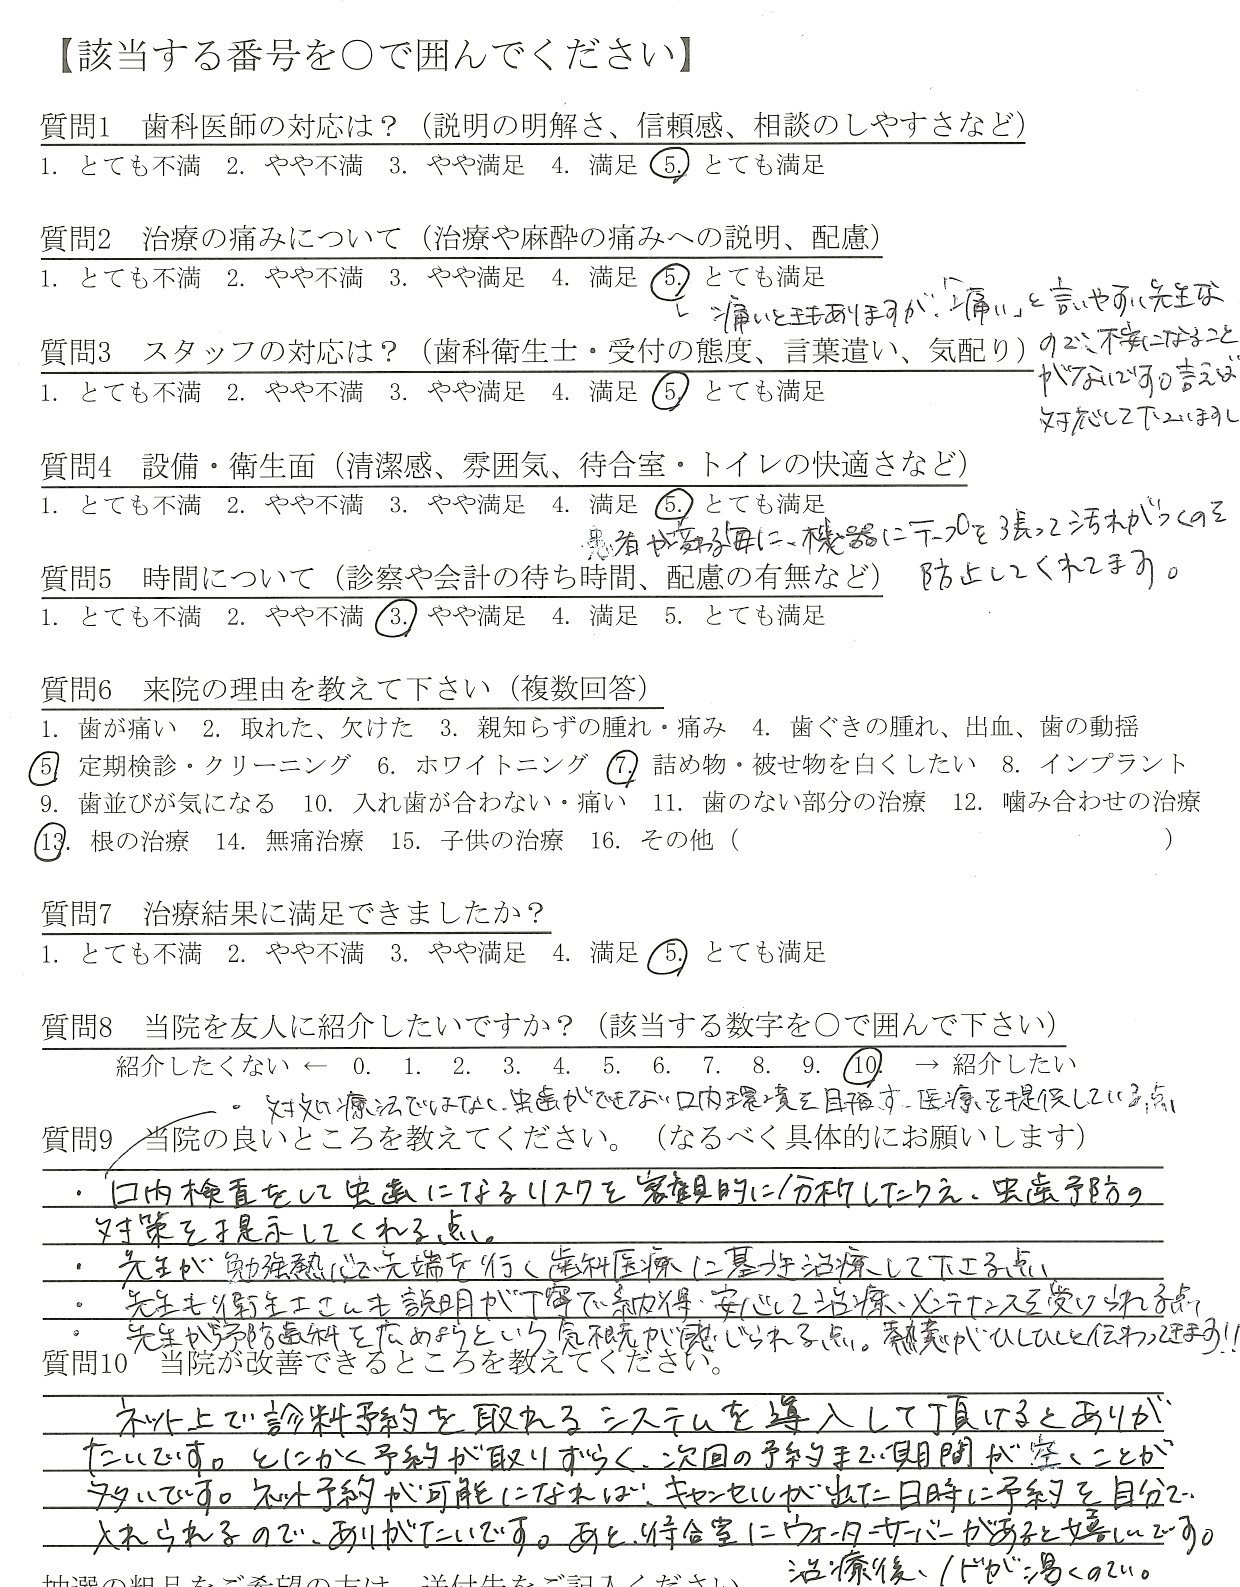 【該当する番号を○で囲んでください】
質問1　歯科医師の対応は？（説明の明解さ、信頼感、相談のしやすさなど）
1. とても不満　2. やや不満　3. やや満足　4. 満足　5. とても満足
質問2　治療の痛みについて（治療や麻酔の痛みへの説明、配慮）
1. とても不満　2. やや不満　3. やや満足　4. 満足　5. とても満足
痛いときもありますが、「痛い」と言いやすい先生な
ので、不安になること
がないです。言えば
対応して下さいますし
質問3　スタッフの対応は？（歯科衛生士・受付の態度、言葉遣い、気配り）
1. とても不満　2. やや不満　3. やや満足　4. 満足　5. とても満足
質問4　設備・衛生面（清潔感、雰囲気、待合室・トイレの快適さなど）
1. とても不満　2. やや不満　3. やや満足　4. 満足　5. とても満足
患者が変わる毎に、機器にテープを張って汚れがつくのを
防止してくれてます。
質問5　時間について（診察や会計の待ち時間、配慮の有無など）
1. とても不満　2. やや不満　3. やや満足　4. 満足　5. とても満足
質問6　来院の理由を教えて下さい（複数回答）
1. 歯が痛い　2. 取れた、欠けた　3. 親知らずの腫れ・痛み　4. 歯ぐきの腫れ、出血、歯の動揺
5. 定期検診・クリーニング　6. ホワイトニング　7. 詰め物・被せ物を白くしたい　8. インプラント
9. 歯並びが気になる　10. 入れ歯が合わない・痛い　11. 歯のない部分の治療　12. 噛み合わせの治療
13. 根の治療　14. 無痛治療　15. 子供の治療　16. その他（　　　）
質問7　治療結果に満足できましたか？
1. とても不満　2. やや不満　3. やや満足　4. 満足　5. とても満足
質問8　当院を友人に紹介したいですか？（該当する数字を○で囲んで下さい）
紹介したくない ← 0. 1. 2. 3. 4. 5. 6. 7. 8. 9. 10. → 紹介したい
・対処療法ではなく、虫歯ができない口内環境を目指す、医療を提供している点
質問9　当院の良いところを教えてください。（なるべく具体的にお願いします）
・口内検査をして虫歯になるリスクを客観的に分析したうえ、虫歯予防の
対策を提示してくれる点。
・先生が勉強熱心で先端を行く歯科医療に基き治療して下さる点
・先生も衛生士さんも説明が丁寧で納得・安心して治療・メンテナンスを受けられる点
・先生が予防歯科を広めようという気概が感じられる点。熱意がひしひしと伝わってきます!!
質問10　当院が改善できるところを教えてください。
ネット上で診料予約を取れるシステムを導入して頂けるとありが
たいです。とにかく予約が取りずらく、次回の予約まで期間が空くことが
多いです。ネット予約が可能になれば、キャンセルが出た日時に予約を自分で
入れられるので、ありがたいです。あと、待合室にウォーターサーバーがあると嬉しいです。
治療後、ノドが渇くので。
抽選の粗品をご希望の方は、送付先をご記入ください